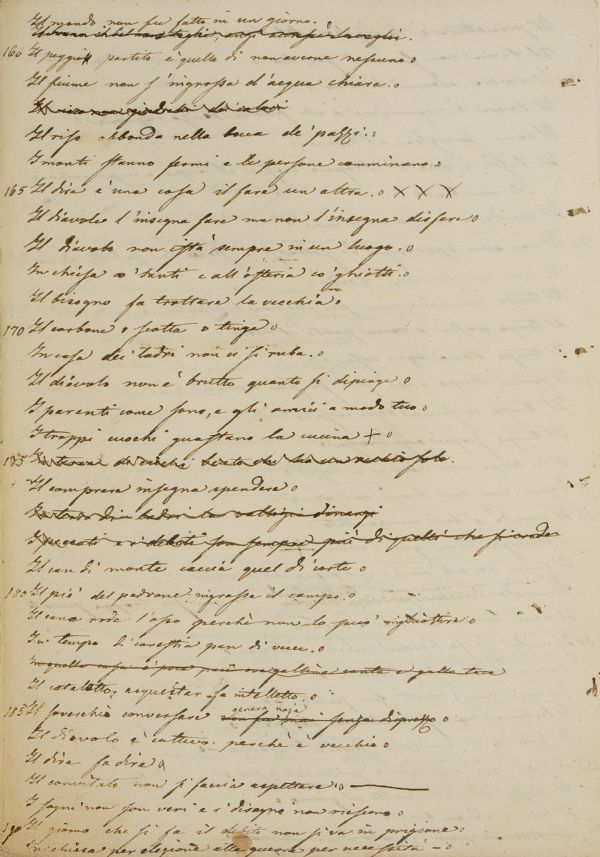 Il mondo non fu fatto in un giorno.
160 Il peggio partito è quello di non averne nessuno
Il fiume non s'ingrossa d'acqua chiara.
Il riso abbonda nella bocca de' pazzi.
I monti stanno fermi e le persone camminano.
165 Il dire è una cosa il fare un altra. x x x
Il diavolo l'insegna fare ma non l'insegna disfare
Il diavolo non istà sempre in un luogo.
In chiesa co' santi e all'osteria co' ghiotti.
Il bisogno fa trottare la vecchia
170 Il carbone o scotta o tinge
In casa dei ladri non ci si ruba.
Il diavolo non è brutto quanto si dipinge
I parenti come sono, e gli amici a modo tuo
I troppi cuochi guastano la cucina +
In terra di ciechi beato chi ha un occhio solo.
Il comprare insegna spendere
I peccati e i debiti son sempre più di quelli che si crede
Il can di monte caccia quel di corte
180 Il piè del padrone ingrassa il campo.
Il cane rode l'osso perchè non lo può inghiottire
In tempo di carestia pan di vecce.
In quella casa è poca pace ove gallina canta e gallo tace
Il cataletto, acquistar fa intelletto.
185 Il soverchio conversare genera noja
Il diavolo è cattivo perchè è vecchio
Il dire fa dire
Il convitato non si faccia aspettare
I sogni non son veri e i disegni non riescono
190 Il giorno che si fa il debito non si va in prigione
In chiesa per elezione alla guerra per necessità